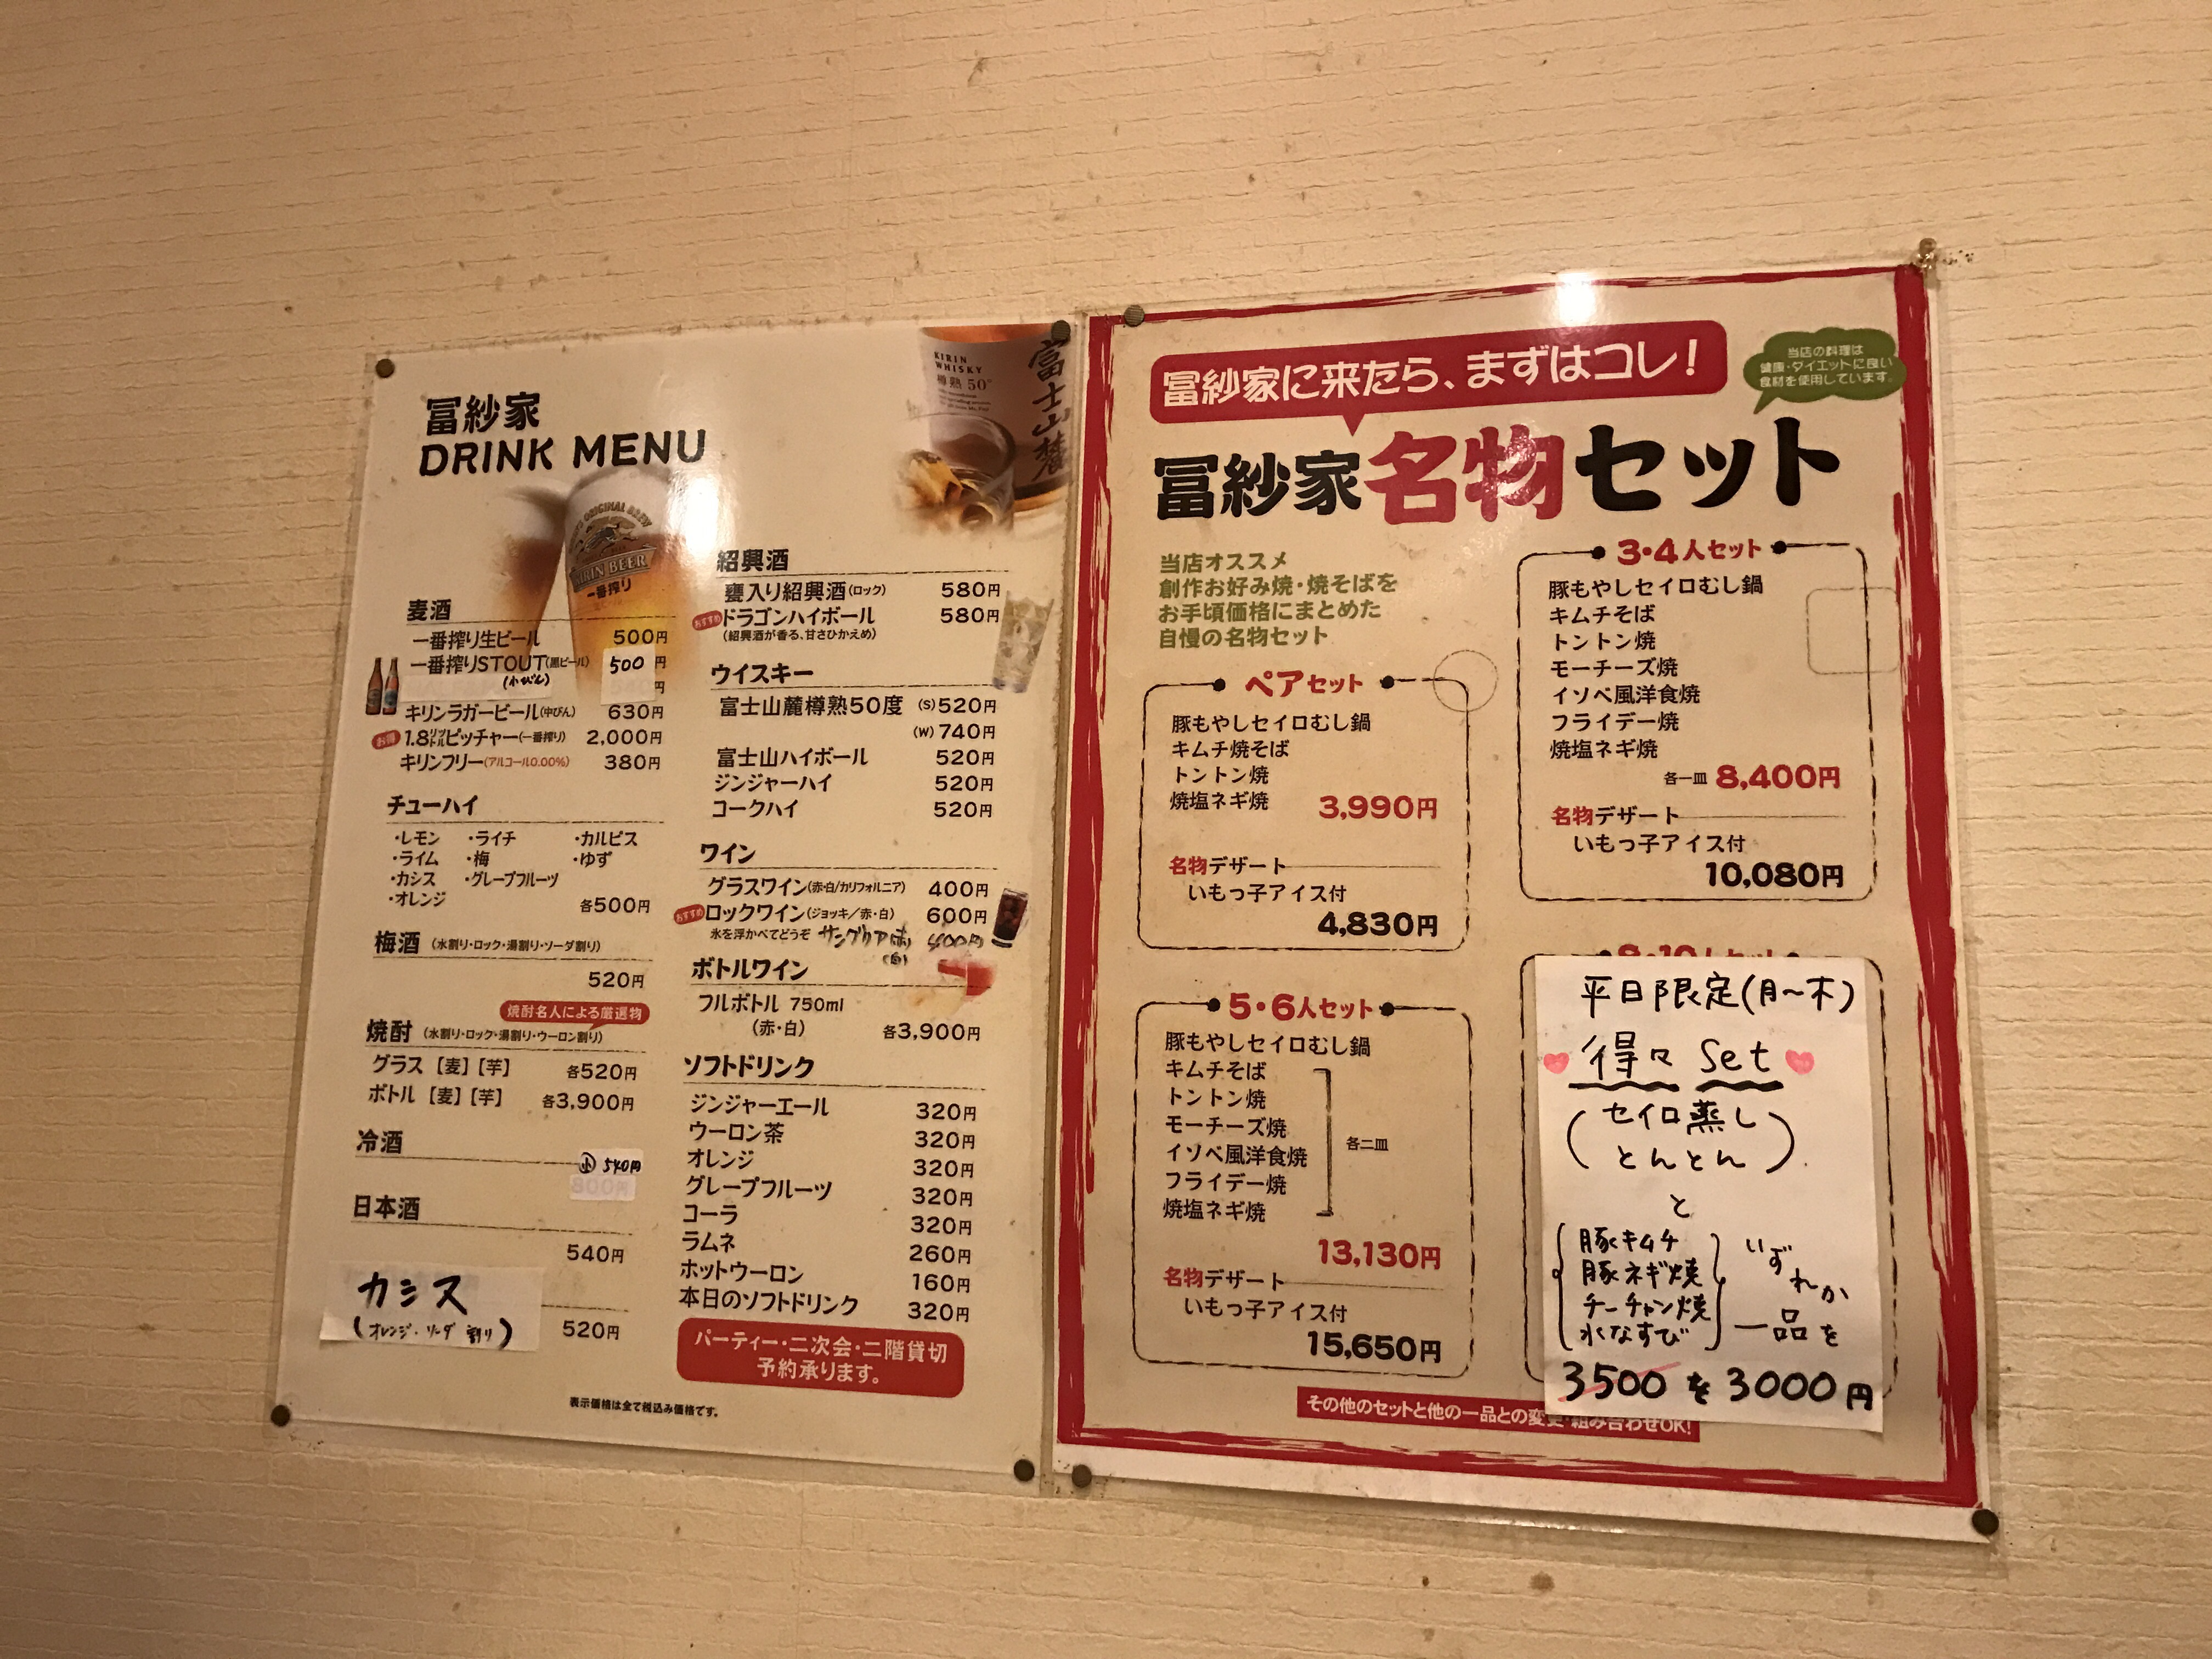 冨紗家
DRINK MENU
KIRIN
WHISKY
樽熟 50°
富士山麓
ORIGINAL BREW
KIRIN BEER
一番搾り
麦酒
一番搾り生ビール 500円
一番搾りSTOUT(黒ビール) 500 円
(小びん) 円
キリンラガービール(中びん) 630円
お得 1.8リットルピッチャー(一番搾り) 2,000円
キリンフリー(アルコール0.00%) 380円
チューハイ
・レモン ・ライチ ・カルピス
・ライム ・梅 ・ゆず
・カシス ・グレープフルーツ
・オレンジ 各500円
梅酒 (水割り・ロック・湯割り・ソーダ割り)
520円
焼酎名人による厳選物
焼酎 (水割り・ロック・湯割り・ウーロン割り)
グラス [麦] [芋] 各520円
ボトル [麦] [芋] 各3,900円
冷酒
小 540円
800円
日本酒
540円
カシス
(オレンジ・ソーダ 割り) 520円
紹興酒
甕入り紹興酒(ロック) 580円
おすすめ ドラゴンハイボール 580円
(紹興酒が香る、甘さひかえめ)
ウイスキー
富士山麓樽熟50度 (S)520円
(W)740円
富士山ハイボール 520円
ジンジャーハイ 520円
コークハイ 520円
ワイン
グラスワイン(赤・白/カリフォルニア) 400円
おすすめ ロックワイン(ジョッキ/赤・白) 600円
氷を浮かべてどうぞ サングリア(赤) 400円
(白)
ボトルワイン
フルボトル 750ml
(赤・白) 各3,900円
ソフトドリンク
ジンジャーエール 320円
ウーロン茶 320円
オレンジ 320円
グレープフルーツ 320円
コーラ 320円
ラムネ 260円
ホットウーロン 160円
本日のソフトドリンク 320円
パーティー・二次会・二階貸切
予約承ります。
表示価格は全て税込み価格です。
冨紗家に来たら、まずはコレ!
当店の料理は
健康・ダイエットに良い
食材を使用しています。
冨紗家名物セット
当店オススメ
創作お好み焼・焼そばを
お手頃価格にまとめた
自慢の名物セット
ペアセット
豚もやしセイロむし鍋
キムチ焼そば
トントン焼
焼塩ネギ焼 3,990円
名物デザート
いもっ子アイス付
4,830円
3・4人セット
豚もやしセイロむし鍋
キムチそば
トントン焼
モーチーズ焼
イソベ風洋食焼
フライデー焼
焼塩ネギ焼
各一皿 8,400円
名物デザート
いもっ子アイス付
10,080円
5・6人セット
豚もやしセイロむし鍋
キムチそば
トントン焼
モーチーズ焼
イソベ風洋食焼 各二皿
フライデー焼
焼塩ネギ焼
13,130円
名物デザート
いもっ子アイス付
15,650円
8・10人セット
平日限定(月〜木)
得々 Set
(セイロ蒸し
とんとん)
と
豚キムチ
豚ネギ焼
チーチャン焼
水なすび
いずれか
一品を
3500 を 3000円
その他のセットと他の一品との変更・組み合わせOK!